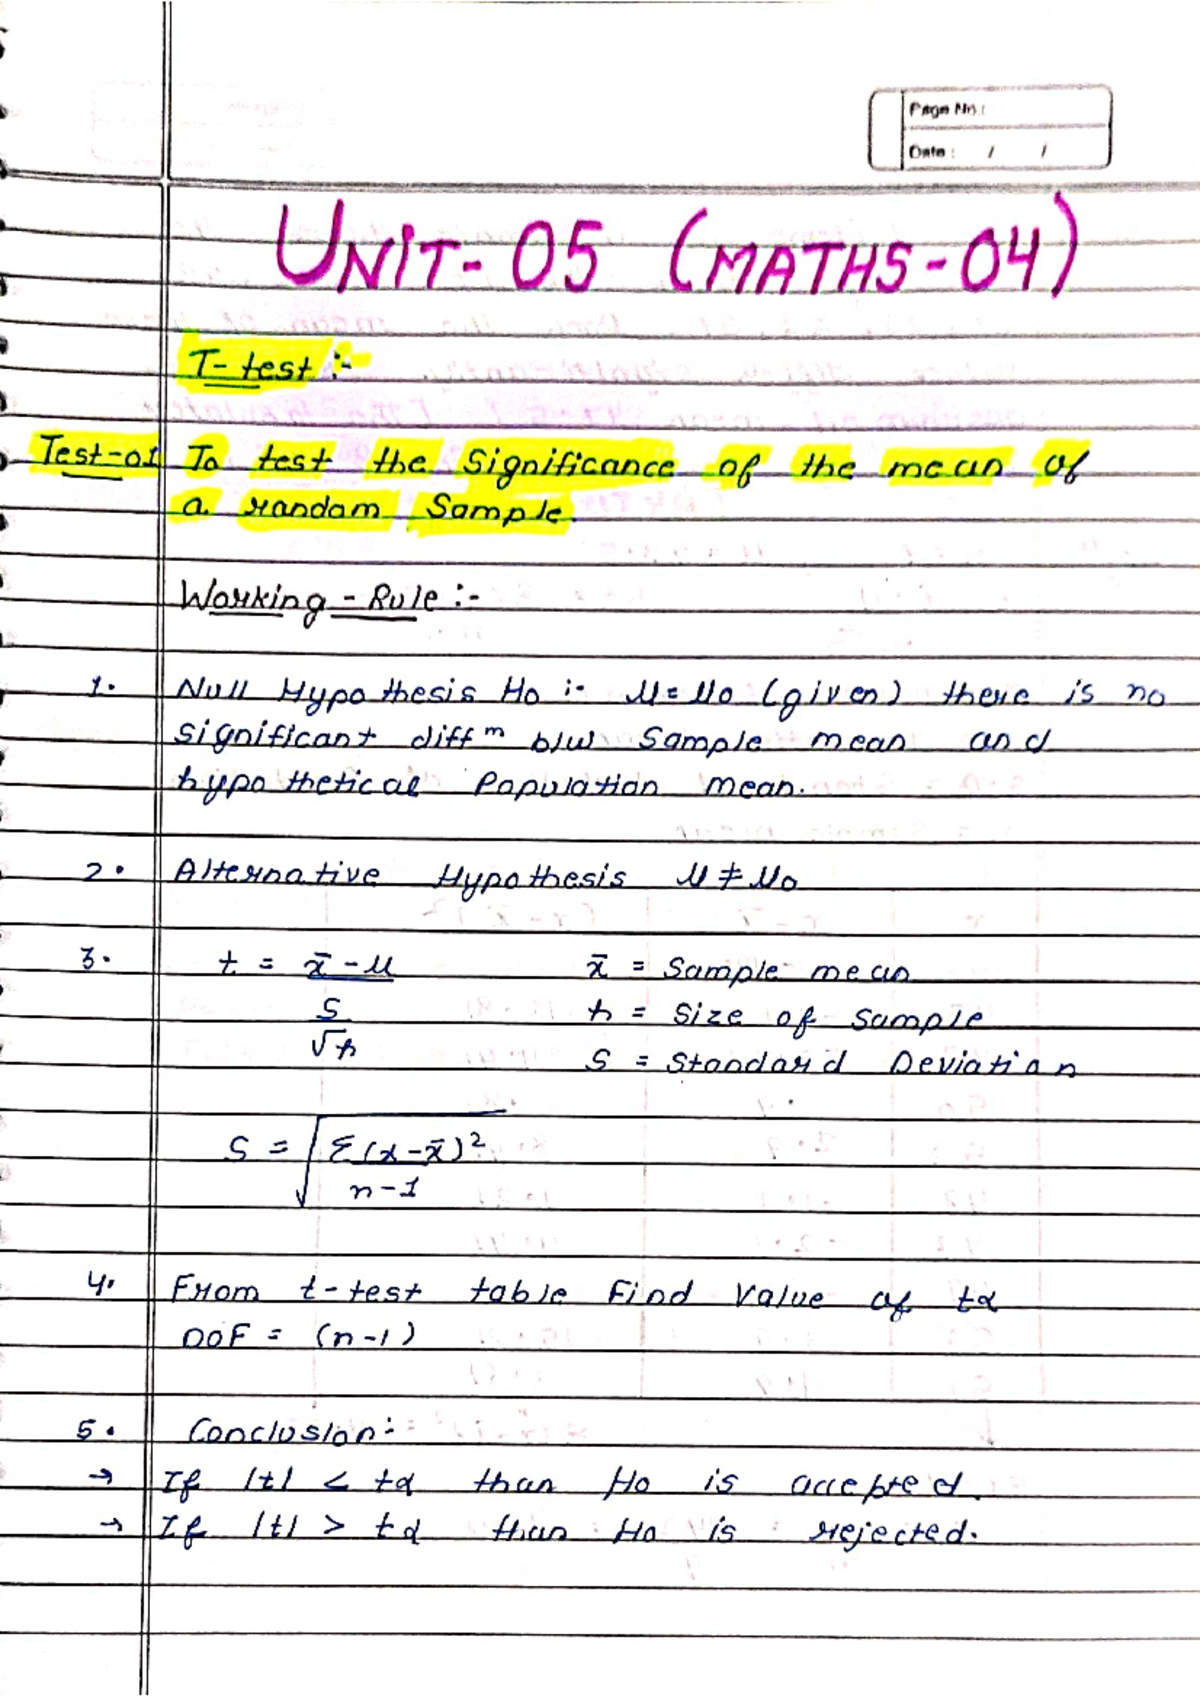 Page No.:
Date : / /
UNIT- 05 (MATHS-04)
T-test :-
Test-01 To test the Significance of the mean of
a random Sample.
Working - Rule :-
1. Null Hypothesis Ho :- μ = μo (given) there is no
significant diffⁿ b/w Sample mean and
hypothetical Population mean.
2. Alternative Hypothesis μ ≠ μo
3. t = x̄ - μ / (S / √n)
x̄ = Sample mean
n = Size of Sample
S = Standard Deviation
S = √(Σ(x-x̄)² / n-1)
4. From t-test table Find Value of tα
DOF = (n-1)
5. Conclusion:-
→ If |t| < tα than Ho is accepted.
→ If |t| > tα than Ho is rejected.